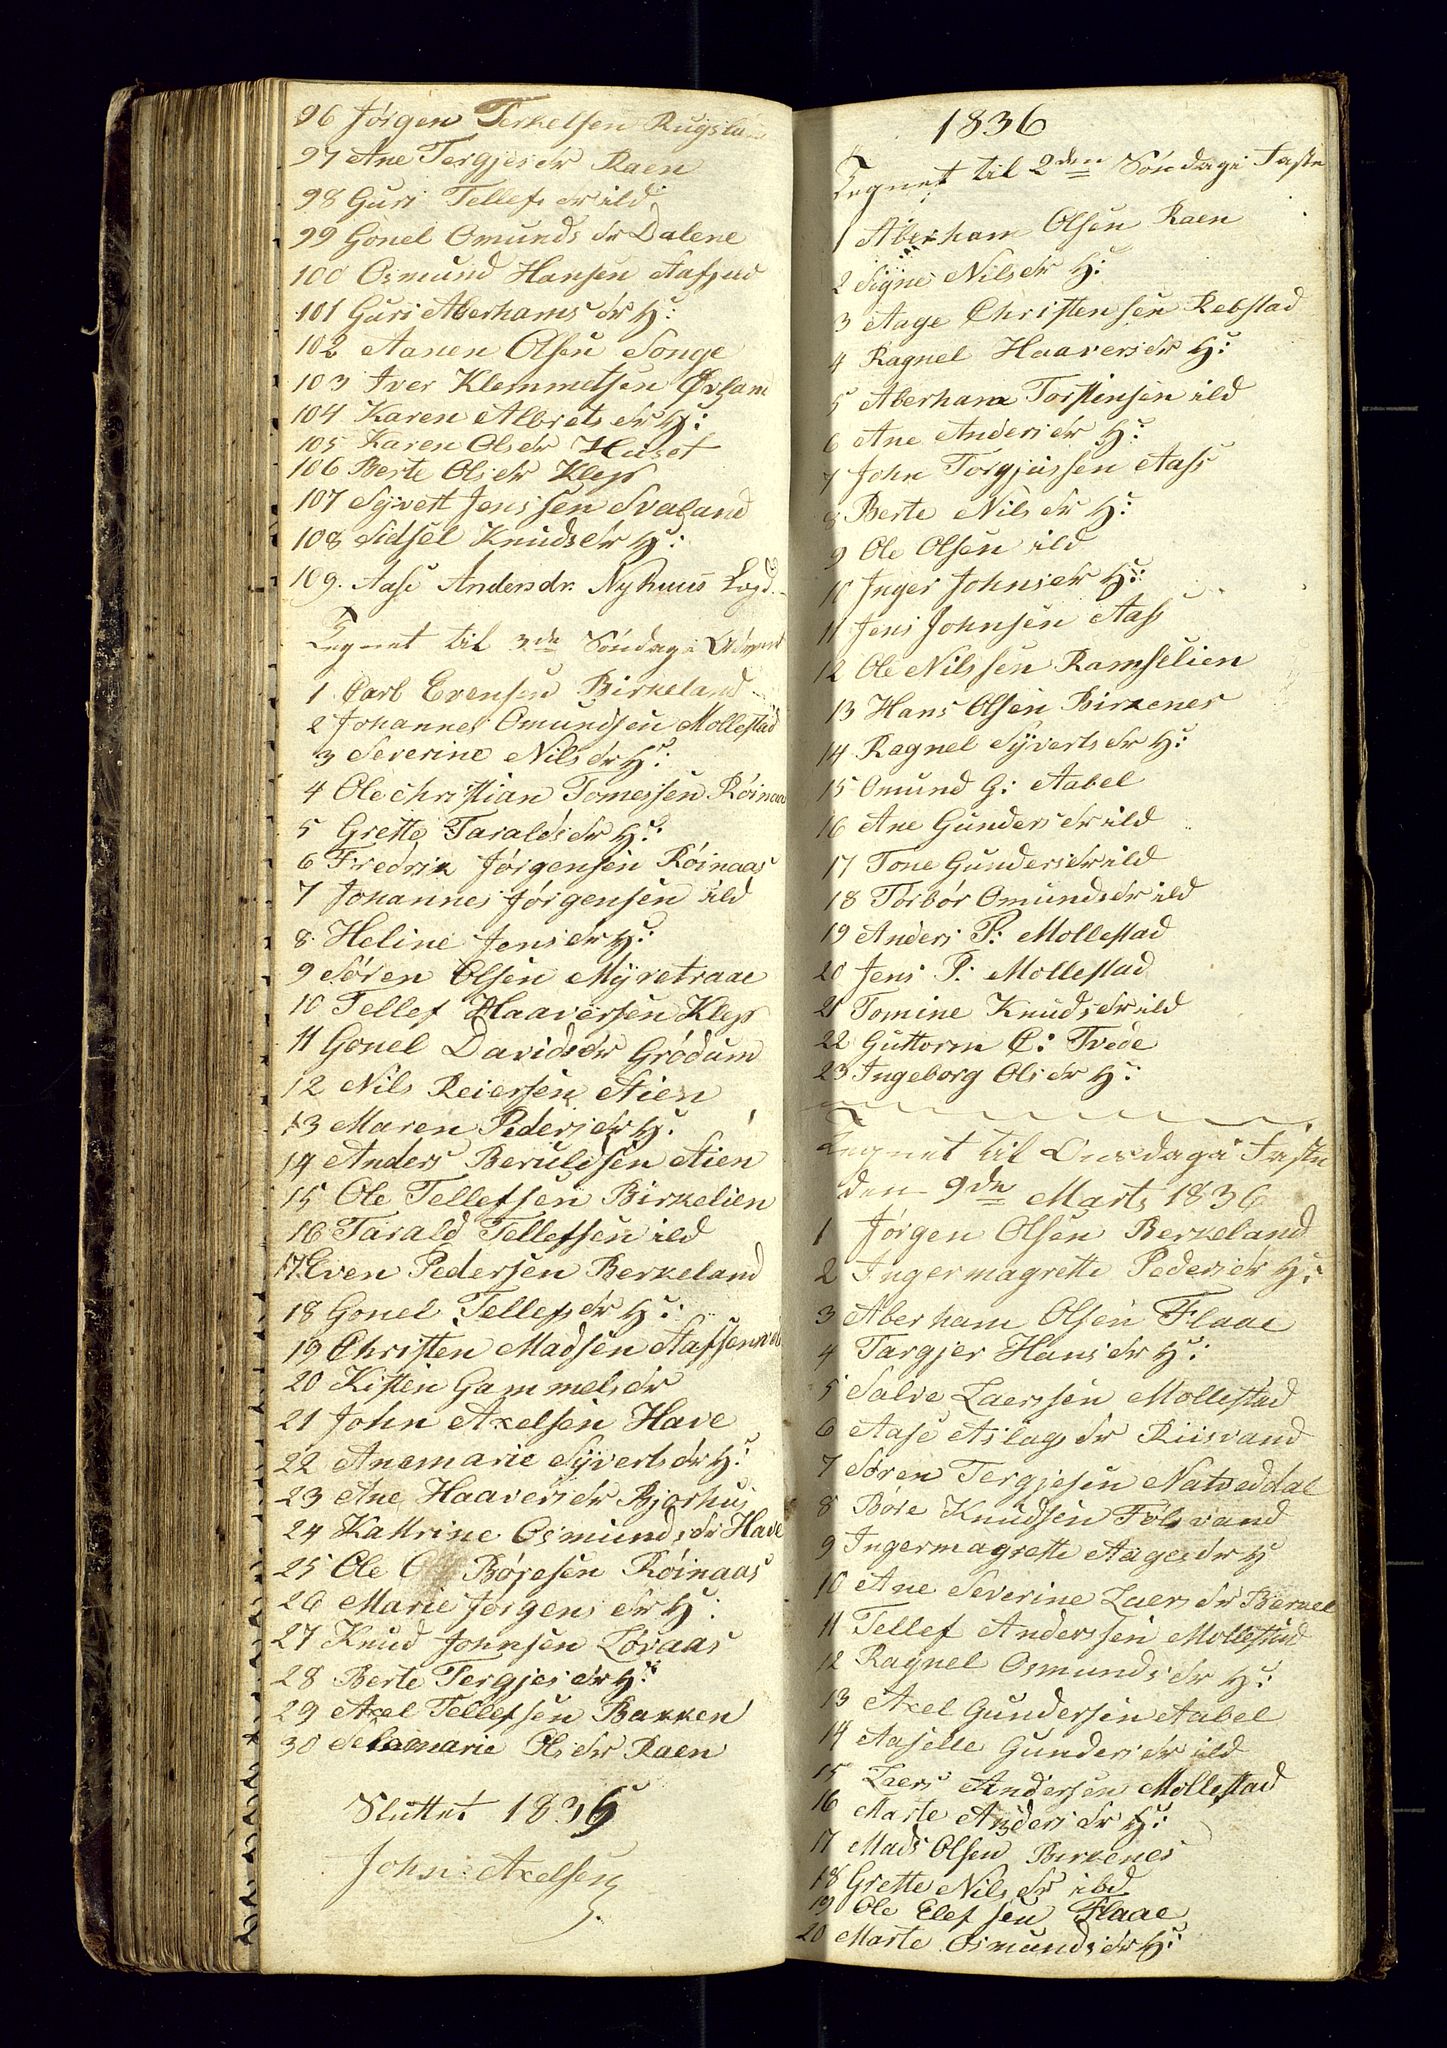 96 Jörgen Terkelsen
97 Ane Tergjesdr Raen
98 Guri Tellefsdr ild
99 Gonel Omundsdr Dalene
100 Osmund Hansen
101 Guri Aberhamsdr H:
102 Aanen Olsen Songe
103 Iver Klemmetsen
104 Karen Albretsdr H:
105 Karen Olsdr Huset
106 Berte Olsdr Klep
107 Syvert Jenssen Svaland
108 Sidsel Knudsdr H:
109. Aase Andersdr. Nyhuus
Tegnet til 3de Söndag i Advent
1 Carl Evensen Birkeland
2 Johannes Omundsen Mollestad
3 Severine Nilsdr H:
4 Ole Christian Tomessen Röinaas
5 Grette Taraldsdr H:
6 Fredrik Jörgensen Röinaas
7 Johannes Jörgensen ild
8 Heline Jensdr H:
9 Sören Olsen Myretraae
10 Tellef Haaversen Klep
11 Gonel Davidsdr Grödum
12 Nils Reiersen Aien
13 Maren Pedersdr H:
14 Anders Beruldsen Aien
15 Ole Tellefsen Birkelien
16 Tarald Tellefsen ild
17 Even Pedersen Berkeland
18 Gonel Tellefsdr H:
19 Christen Madsen
20 Kisten Gammelsdr
21 John Axelsen Have
22 Anemarie Syvertsdr H:
23 Ane Haaversdr Bjorhus
24 Kattrine Osmundsdr Have
25 Ole Börjesen Röinaas
26 Marie Jörgensdr H:
27 Knud Johnsen Lövaas
28 Berte Tergjesdr H:
29 Axel Tellefsen Bakken
30 Olsdr Raen
Sluttet 1835
John Axelsen
1836
Tegnet til 2den Söndag i Faste
1 Aberham Olsen Raen
2 Signe Nilsdr H:
3 Aage Christensen Rebstad
4 Ragnel Haaversdr H:
5 Aberham Torstensen ild
6 Ane Andersdr H:
7 John Torgjussen Aass
8 Berte Nilsdr H:
9 Ole Olsen ild
10 Inger Johnsdr H:
11 Jens Johnsen Aass
12 Ole Nilssen Ramselien
13 Hans Olsen Birkenes
14 Ragnel Syvertsdr H:
15 Omund G: Aabel
16 Ane Gundersdr ild
17 Tone Gundersdr ild
18 Torbör Omundsdr ild
19 Anders P: Mollestad
20 Jens P: Mollestad
21 Tomine Knudsdr ild
22 Guttorm C: Tvede
23 Ingeborg Olsdr H:
Tegnet til Onsdag i Faste
den 9de Marts 1836
1 Jörgen Olsen Berkeland
2 Ingermagrette Pedersdr H:
3 Aberham Olsen Flaae
4 Targjer Hansdr H:
5 Salve Laerssen Mollestad
6 Aase Aslagsdr Riisvand
7 Sören Tergjesen Natveddal
8 Böre Knudsen Fölsvand
9 Ingermagrette Aagesdr H
10 Ane Severine Laersdr Berkel
11 Tellef Anderssen Mollestad
12 Ragnel Osmundsdr H:
13 Axel Gundersen Aabel
14 Aaselle Gundersdr ild
15 Laers Andersen Mollestad
16 Marte Andersdr H:
17 Mads Olsen Berkenes
18 Grette Nilsdr ibd
19 Ole Elefsen Flaae
20 Marte Osmundsdr H: